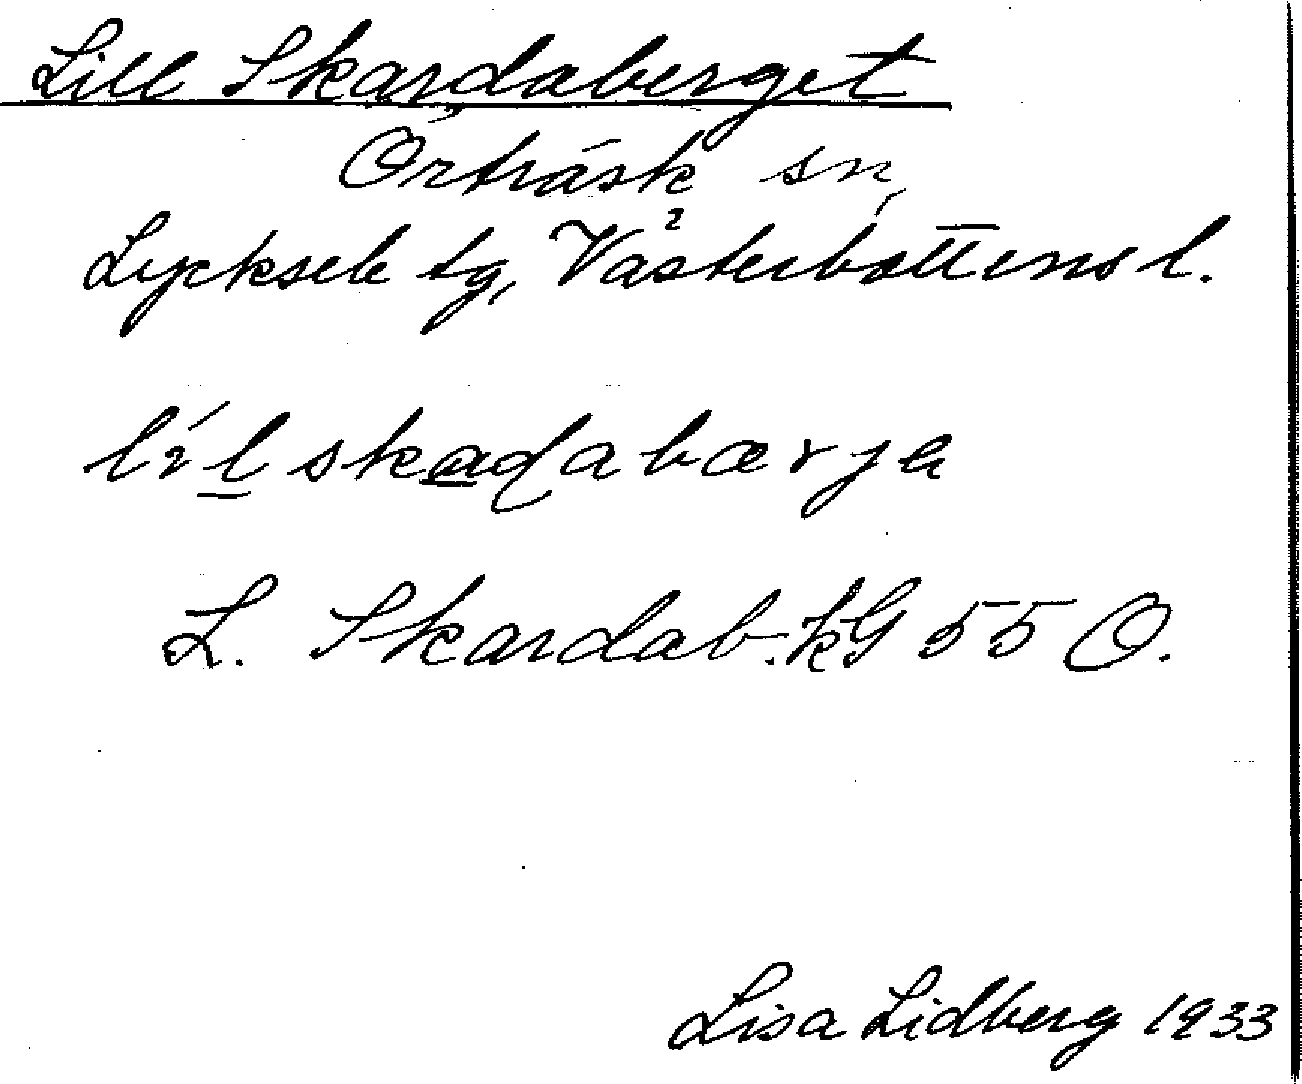 Lill Skardaberget
Örträsk sn,
Lycksele tg, Västerbottens l.
lil skaɖabærjɐ
L. Skardab. kG 55 O.
Lisa Lidberg 1933